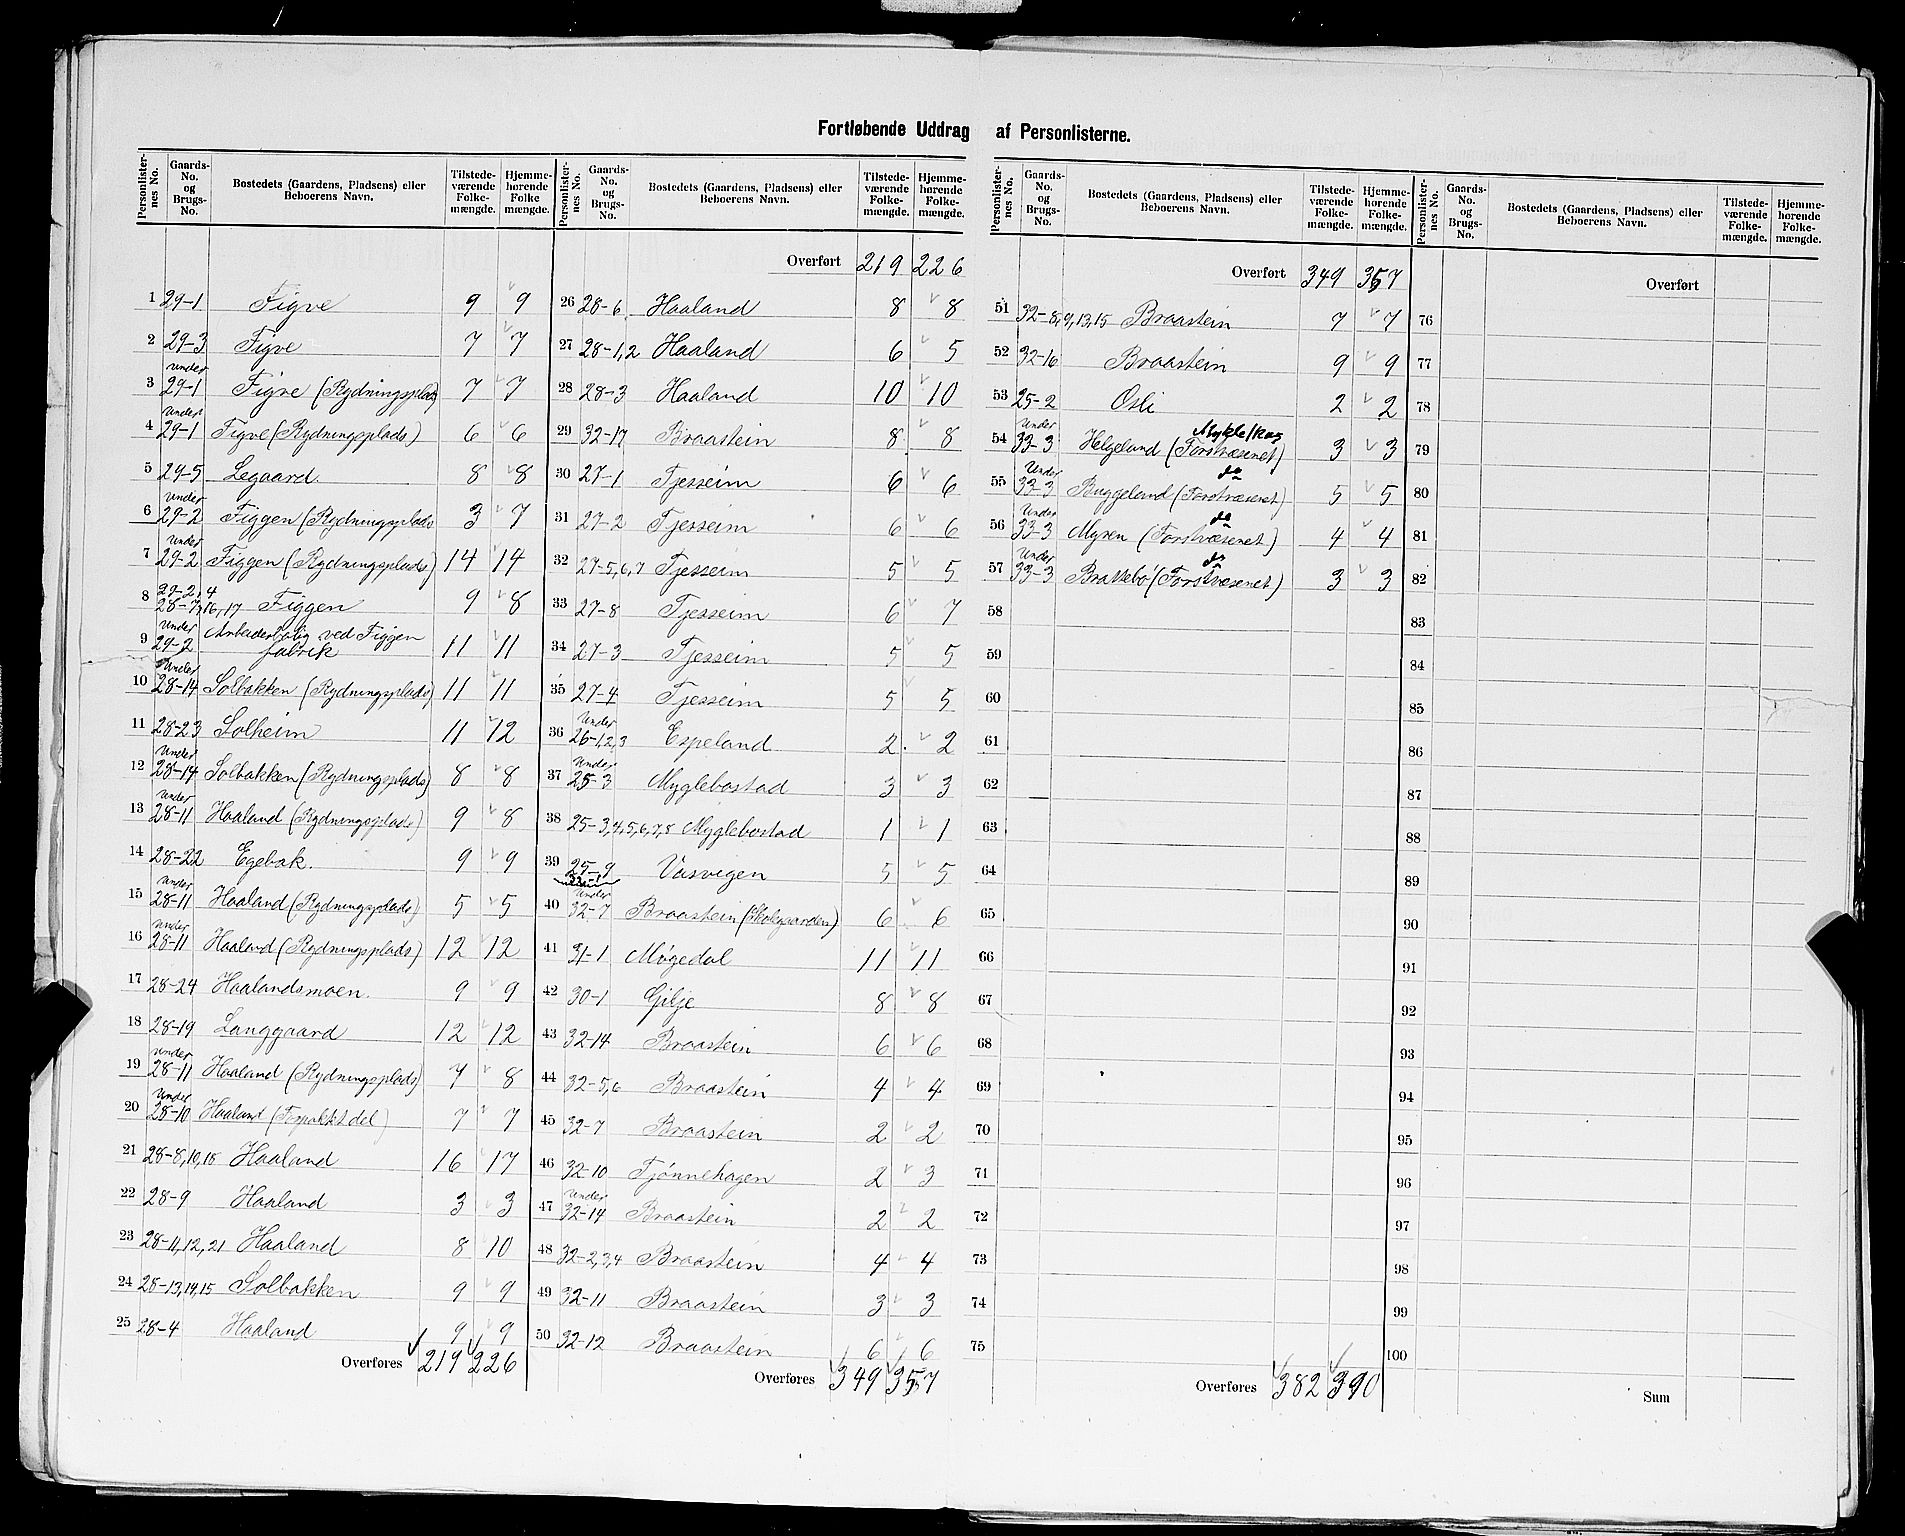 Fortløbende Uddrag af Personlisterne.
Personlister-nes No. | Gaards-No. og Brugs-No. | Bostedets (Gaardens, Pladsens) eller Beboerens Navn. | Tilstede-værende Folke-mængde. | Hjemme-hørende Folke-mængde.
1 29-1 Figve 9 9
2 29-3 Figve 7 7
3 under 29-1 Figve (Rydningsplads) 7 7
4 under 29-1 Figve (Rydningsplads) 6 6
5 29-5 Legaard. 8 8
6 under 29-2 Figgen (Rydningsplads 3 7
7 under 29-2 Figgen (Rydningsplads) 14 14
8 29-2,4 28-7,16,17 Figgen 9 8
9 under 29-2 Arbeiderbolig ved Figgen fabrik 11 11
10 under 28-14 Solbakken (Rydningsplads) 11 11
11 28-23 Solheim 11 12
12 under 28-14 Solbakken (Rydningsplads) 8 8
13 under 28-11 Haaland (Rydningsplads) 9 8
14 28-22 Egebak. 9 9
15 under 28-11 Haaland (Rydningsplads) 5 5
16 under 28-11 Haaland (Rydningsplads) 12 12
17 28-24 Haalandsmoen. 9 9
18 28-19 Langgaard 12 12
19 under 28-11 Haaland (Rydningsplads) 7 8
20 under 28-10 Haaland (Forpaktet del) 7 7
21 28-8,10,18 Haaland 16 17
22 28-9 Haaland 3 3
23 28-11,12,21 Haaland 8 10
24 28-13,14,15 Solbakken 9 9
25 28-4 Haaland 9 9
Overføres 219 226
Personlister-nes No. | Gaards-No. og Brugs-No. | Bostedets (Gaardens, Pladsens) eller Beboerens Navn. | Tilstede-værende Folke-mængde. | Hjemme-hørende Folke-mængde.
Overført 219 226
26 28-6 Haaland 8 8
27 28-1,2 Haaland 6 5
28 28-3 Haaland 10 10
29 32-17 Braastein 8 8
30 27-1 Tjesseim 6 6
31 27-2 Tjesseim 6 6
32 27-5,6,7 Tjesseim 5 5
33 27-8 Tjesseim 6 7
34 27-3 Tjesseim 5 5
35 27-4 Tjesseim 5 5
36 Under 26-1,2,3 Espeland 2 2
37 Under 25-3 Myglebostad 3 3
38 25-3,4,5,6,7,8 Myglebostad 1 1
39 25-9 Vasvigen 5 5
40 Under 32-7 Braastein (Skolegaarden) 6 6
41 31-1 Møgedal 11 11
42 30-1 Gilje 8 8
43 32-14 Braastein 6 6
44 32-5,6 Braastein 4 4
45 32-7 Braastein 2 2
46 32-10 Tjønnehagen 2 3
47 Under 32-14 Braastein 2 2
48 32-2,3,4 Braastein 4 4
49 32-11 Braastein 3 3
50 32-12 Braastein 6 6
Overføres 349 357
Personlister-nes No. | Gaards-No. og Brugs-No. | Bostedets (Gaardens, Pladsens) eller Beboerens Navn. | Tilstede-værende Folke-mængde. | Hjemme-hørende Folke-mængde.
Overført 349 357
51 32-8,9,13,15 Braastein 7 7
52 32-16 Braastein 9 9
53 25-2 Osli 2 2
54 Under 33-3 Helgeland (Forstvæsenet) 3 3
55 Under 33-3 Buggeland (Forstvæsenet) do 5 5
56 Under 33-3 Myren (Forstvæsenet) do 4 4
57 Under 33-3 Brattebø (Forstvæsenet) do 3 3
58
59
60
61
62
63
64
65
66
67
68
69
70
71
72
73
74
75
Overføres 382 390
Personlister-nes No. | Gaards-No. og Brugs-No. | Bostedets (Gaardens, Pladsens) eller Beboerens Navn. | Tilstede-værende Folke-mængde. | Hjemme-hørende Folke-mængde.
Overført
76
77
78
79
80
81
82
83
84
85
86
87
88
89
90
91
92
93
94
95
96
97
98
99
100
Sum